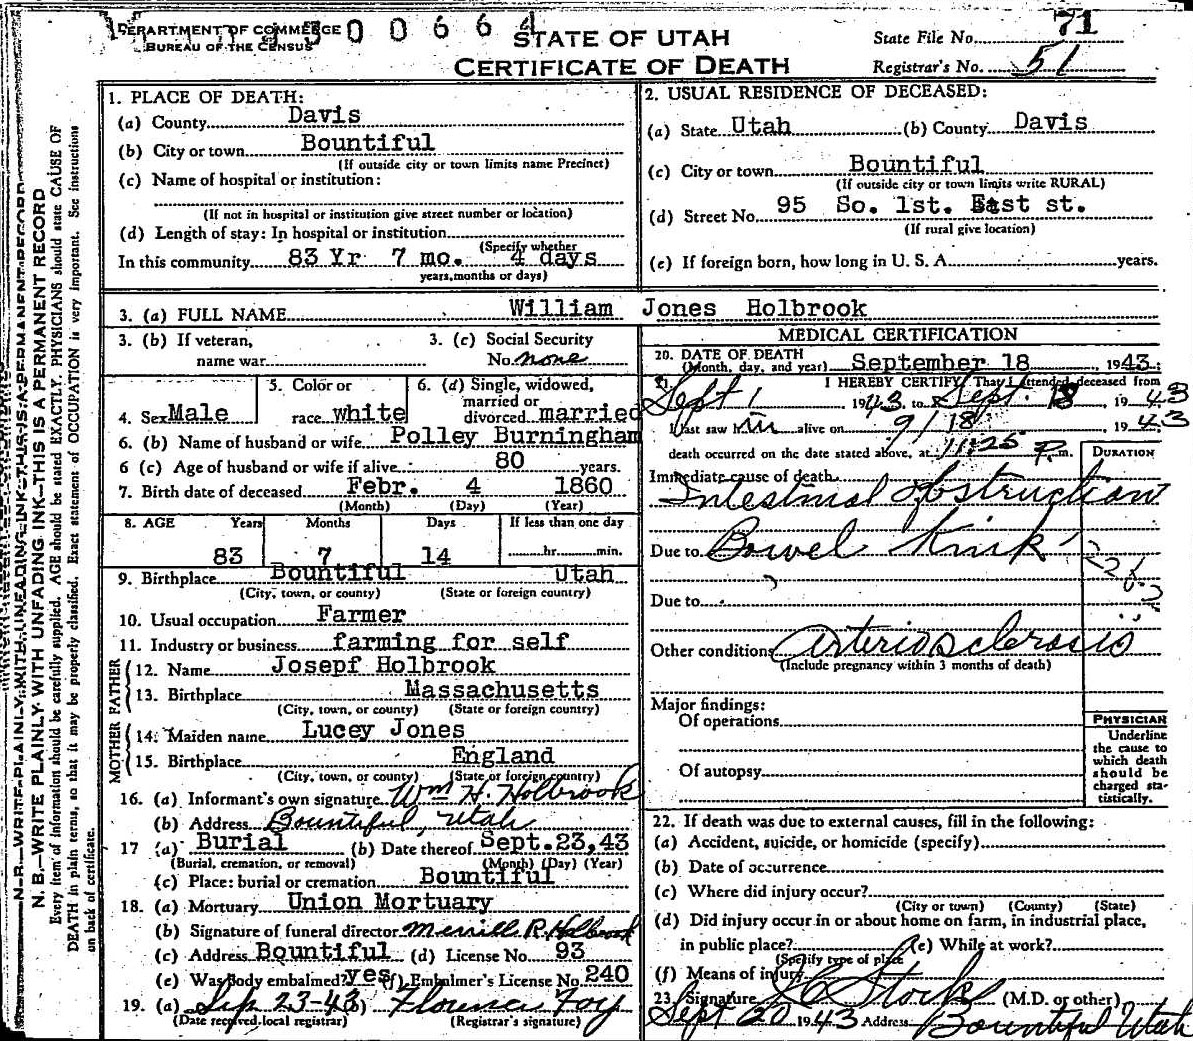 DEPARTMENT OF COMMERCE
BUREAU OF THE CENSUS
STATE OF UTAH
CERTIFICATE OF DEATH
State File No. 71
Registrar's No. 51
N. B.—WRITE PLAINLY WITH UNFADING INK—THIS IS A PERMANENT RECORD
Every item of information should be carefully supplied. AGE should be stated EXACTLY. PHYSICIANS should state CAUSE OF
DEATH in plain terms, so that it may be properly classified. Exact statement of OCCUPATION is very important. See instructions
on back of certificate.
1. PLACE OF DEATH:
(a) County Davis
(b) City or town Bountiful
(If outside city or town limits name Precinct)
(c) Name of hospital or institution:
(If not in hospital or institution give street number or location)
(d) Length of stay: In hospital or institution
(Specify whether
In this community 83 Yr 7 mo. 4 days
years, months or days)
2. USUAL RESIDENCE OF DECEASED:
(a) State Utah (b) County Davis
(c) City or town Bountiful
(If outside city or town limits write RURAL)
(d) Street No. 95 So. 1st. East st.
(If rural give location)
(e) If foreign born, how long in U. S. A. years.
3. (a) FULL NAME William Jones Holbrook
3. (b) If veteran,
name war
3. (c) Social Security
No. none
4. Sex Male
5. Color or
race white
6. (d) Single, widowed,
married or
divorced married
6. (b) Name of husband or wife Polley Burningham
6 (c) Age of husband or wife if alive 80 years.
7. Birth date of deceased Febr. 4 1860
(Month) (Day) (Year)
8. AGE Years Months Days If less than one day
83 7 14 hr. min.
9. Birthplace Bountiful Utah
(City, town, or county) (State or foreign country)
10. Usual occupation Farmer
11. Industry or business farming for self
FATHER
12. Name Josepf Holbrook
13. Birthplace Massachusetts
(City, town, or county) (State or foreign country)
MOTHER
14. Maiden name Lucey Jones
15. Birthplace England
(City, town, or county) (State or foreign country)
16. (a) Informant's own signature Wm H. Holbrook
(b) Address Bountiful, Utah
17 (a) Burial (b) Date thereof Sept.23,43
(Burial, cremation, or removal) (Month) (Day) (Year)
(c) Place: burial or cremation Bountiful
18. (a) Mortuary Union Mortuary
(b) Signature of funeral director Merrill R. Holbrook
(c) Address Bountiful (d) License No. 93
(e) Was body embalmed? yes (f) Embalmer's License No. 240
19. (a) Sep 23-43 Florence Foy
(Date received local registrar) (Registrar's signature)
MEDICAL CERTIFICATION
20. DATE OF DEATH
(Month, day, and year) September 18 1943
21. I HEREBY CERTIFY, That I attended deceased from
Sept 1 1943, to Sept. 18 1943
I last saw him alive on 9/18, 1943
death occurred on the date stated above, at 11:25 P. m.
DURATION
Immediate cause of death
Intestinal obstruction
Due to Bowel Kink
Due to
Other conditions Arteriosclerosis
(Include pregnancy within 3 months of death)
Major findings:
Of operations
Of autopsy
PHYSICIAN
Underline
the cause to
which death
should be
charged sta-
tistically.
22. If death was due to external causes, fill in the following:
(a) Accident, suicide, or homicide (specify)
(b) Date of occurrence
(c) Where did injury occur?
(City or town) (County) (State)
(d) Did injury occur in or about home on farm, in industrial place,
in public place? (e) While at work?
(Specify type of place
(f) Means of injury
23. Signature Stocks (M.D. or other)
Sept 20 1943 Address Bountiful Utah